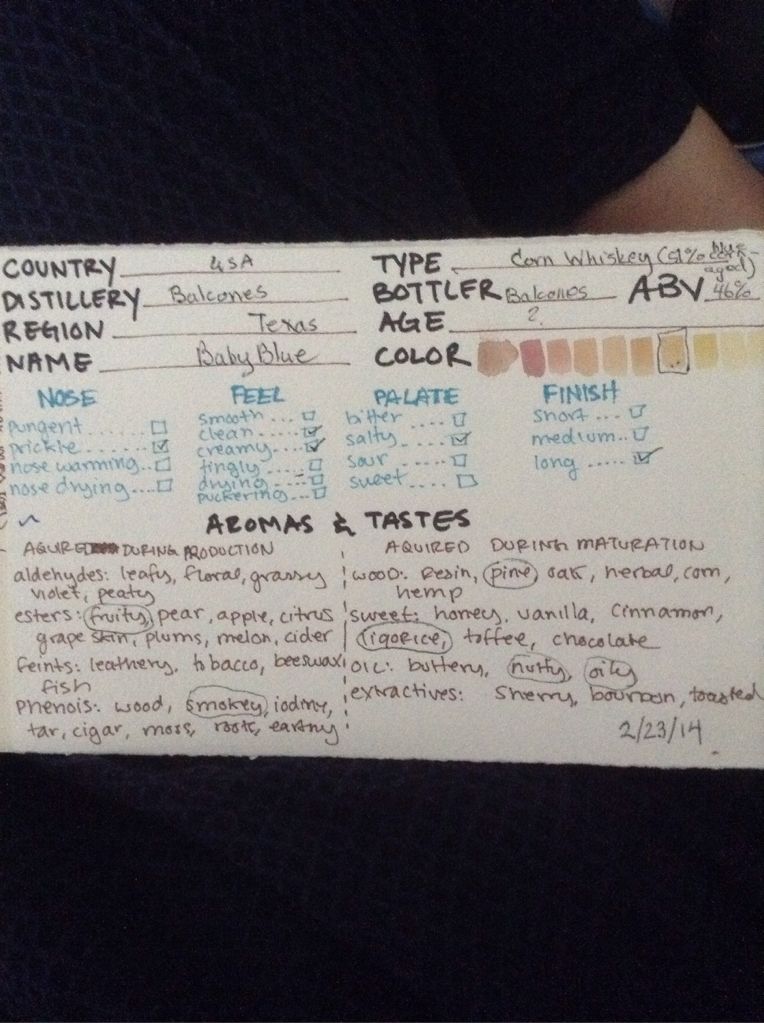 COUNTRY USA
DISTILLERY Balcones
REGION Texas
NAME Baby Blue
TYPE Corn Whiskey (51% blue corn - aged)
BOTTLER Balcones ABV 46%
AGE ?
COLOR
NOSE
pungent........
prickle......
nose warming..
nose drying....
FEEL
smooth....
clean......
creamy....
tingly......
drying....
puckering...
PALATE
bitter....
salty.....
sour.....
sweet....
FINISH
short....
medium...
long.....
AROMAS & TASTES
AQUIRED DURING PRODUCTION
aldehydes: leafy, floral, grassy
violet, peaty
esters: fruity, pear, apple, citrus
grape skin, plums, melon, cider
feints: leathery, tobacco, beeswax
fish
phenols: wood, smokey, iodine,
tar, cigar, moss, roots, earthy
AQUIRED DURING MATURATION
wood: Resin, pine, oak, herbal, corn,
hemp
sweet: honey, vanilla, Cinnamon,
liqorice, toffee, chocolate
oil: buttery, nutty, oily
extractives: Sherry, bourbon, toasted
2/23/14